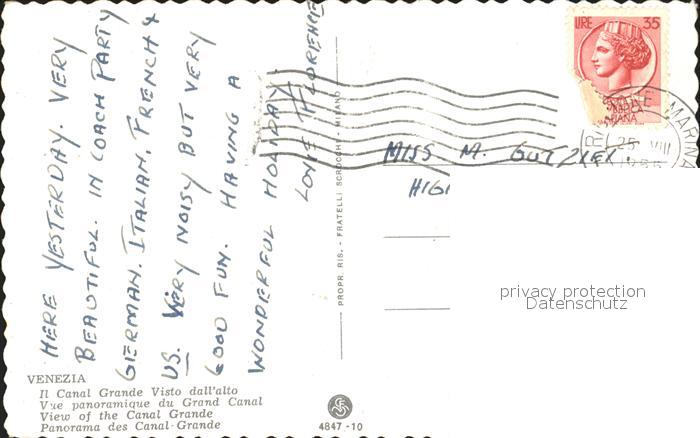 HERE YESTERDAY. VERY
BEAUTIFUL. IN COACH PARTY
GERMAN, ITALIAN, FRENCH &
US. VERY NOISY BUT VERY
GOOD FUN. HAVING A
WONDERFUL HOLIDAY.
LOVE FLORENCE
VENEZIA
Il Canal Grande Visto dall'alto
Vue panoramique du Grand Canal
View of the Canal Grande
Panorama des Canal-Grande
PROPR. RIS. - FRATELLI SCROCCHI - MILANO
4847 - 10
LIRE 35
MARINA
25 VIII
MISS M.
HIGH
privacy protection
Datenschutz